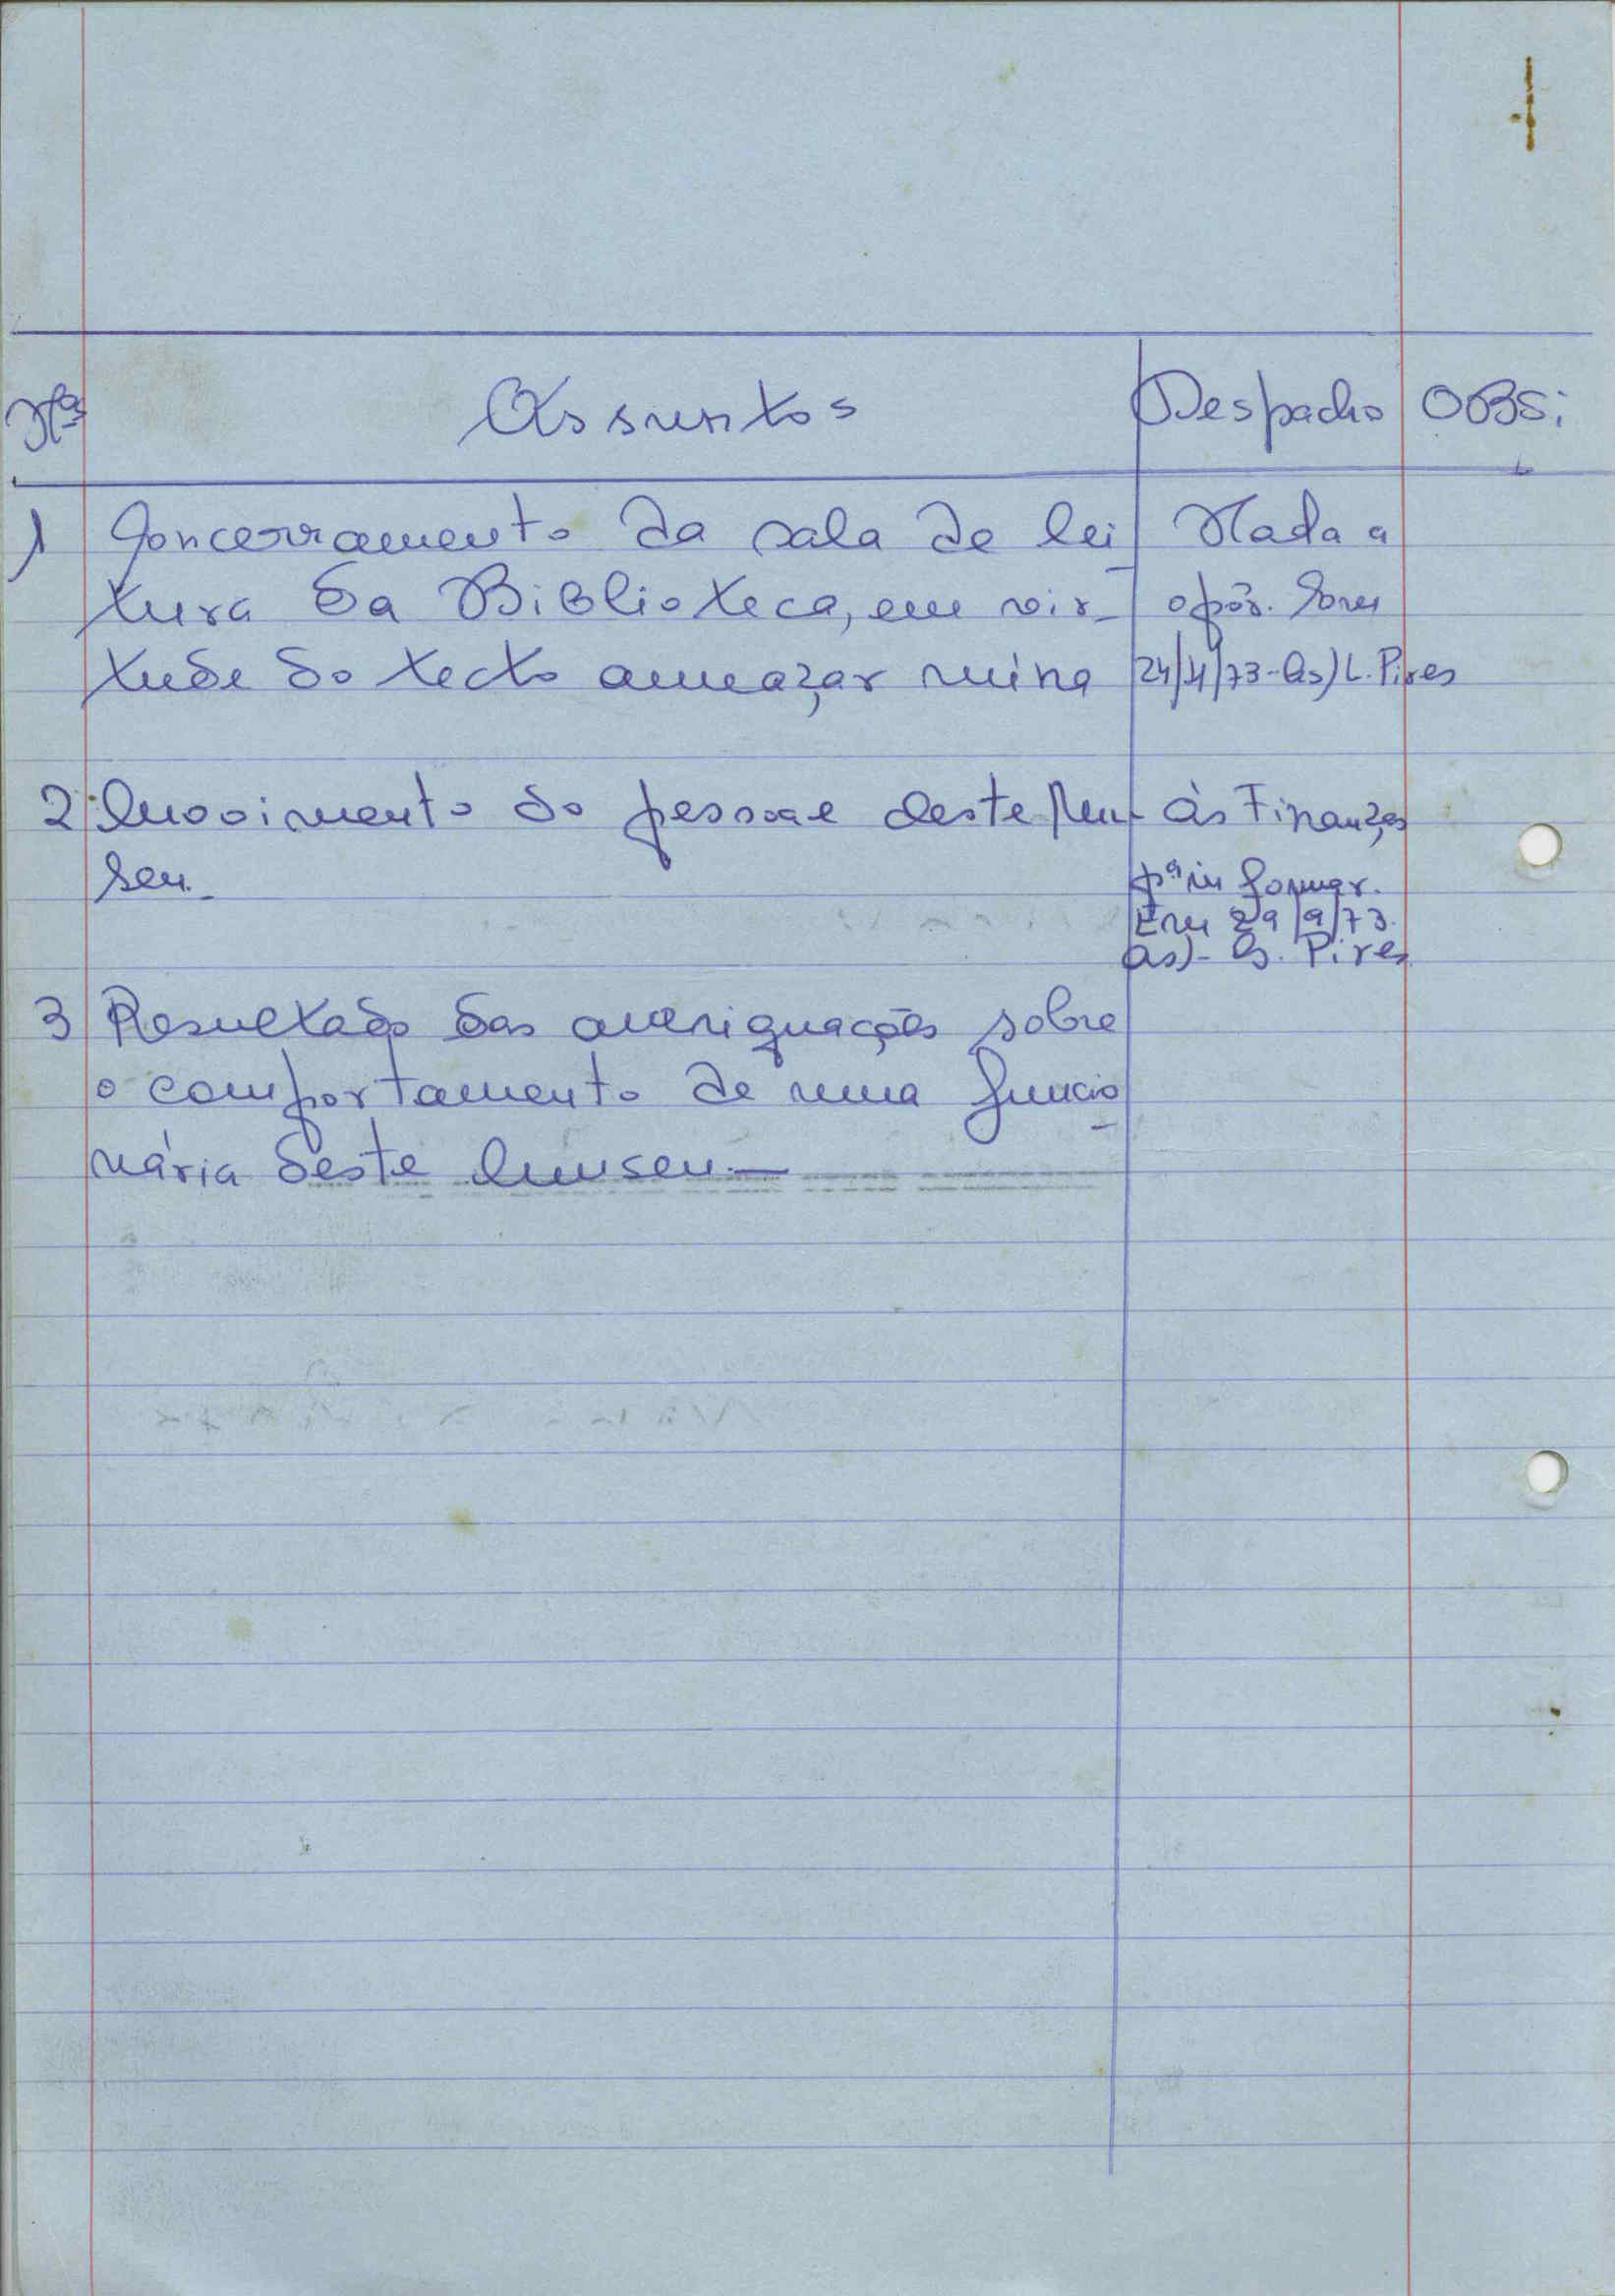 Nºs Assuntos Despacho OBS:
1 Concerramento da sala de lei- Nada a
tura da Biblioteca, em vir- opôr. Em
tude do tecto ameaçar ruína 24/4/73-as) L. Pires
2 Movimento do pessoal deste Mu- às Finanças
seu. pª informar.
Em 29/9/73.
as)- L. Pires
3 Resultado das averiguações sobre
o comportamento de uma funcio-
nária deste Museu.—